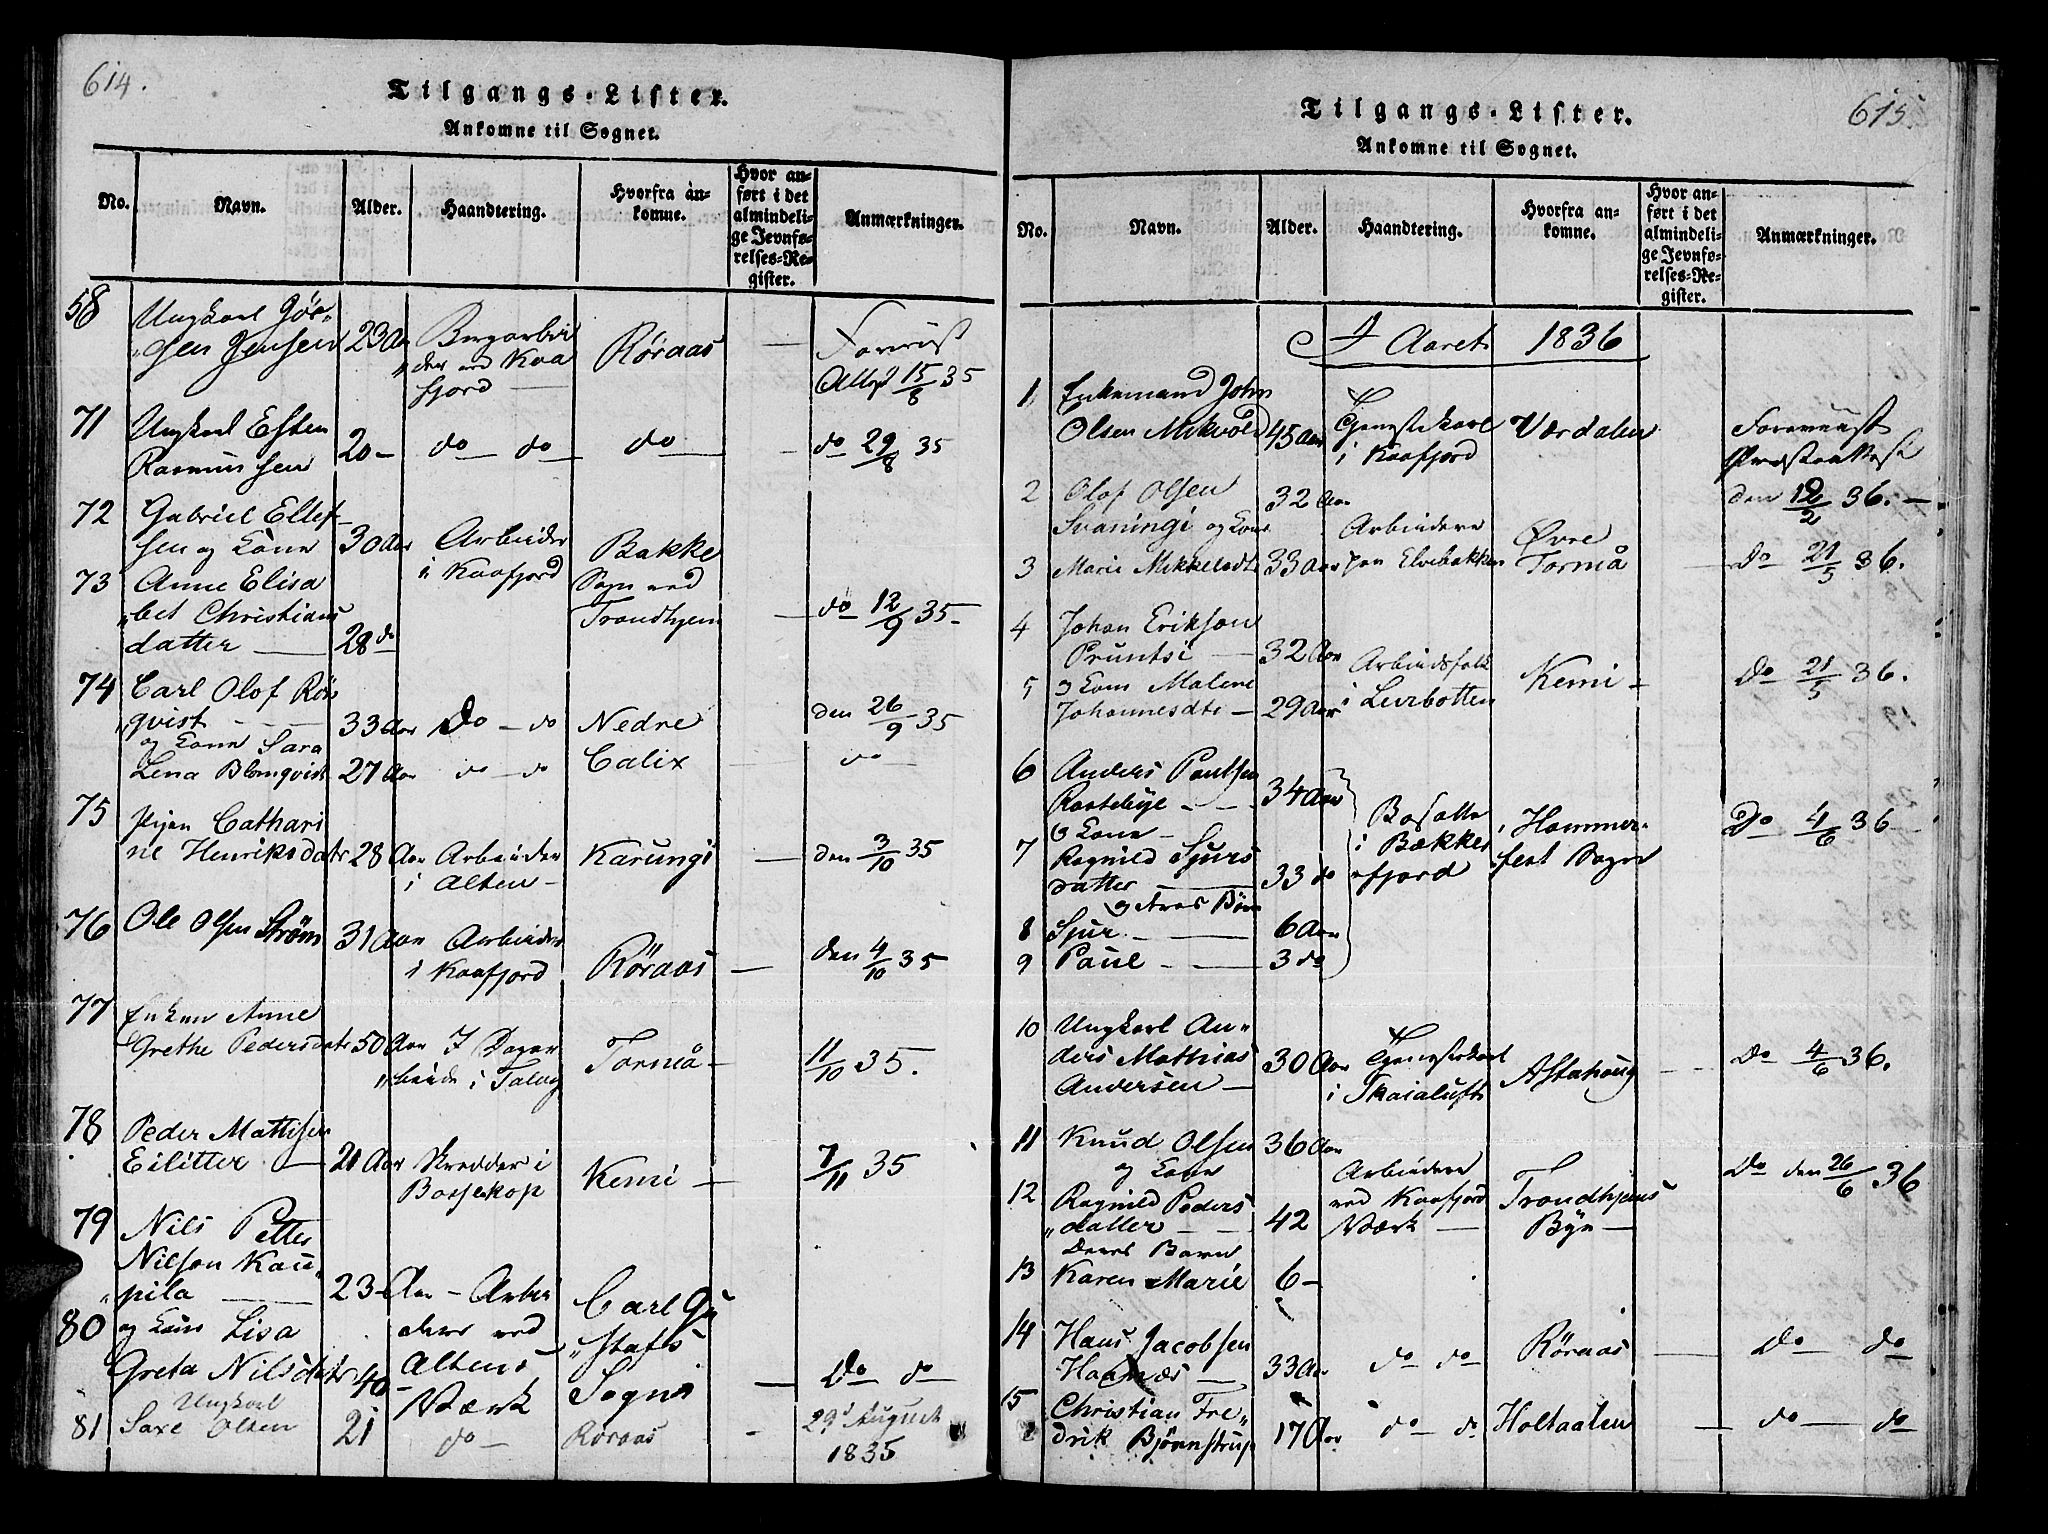 614.
Tilgangs-Lister.
Ankomne til Sognet.
No. Navn. Alder. Haandtering. Hvorfra ankomne. Hvor anført i det almindelige Jevnførelses-Register. Anmærkninger.
58 Ungkarl Jør-
gen Jensen 23 Aar Bergarbei
der ved Kaa
fjord Røraas — Foreviist
Attest 15/8 35
71 Ungkarl Esten
Rasmussen 20 — do do do — do 29/8 35
72 Gabriel Ellef-
sen og Kone 30 Aar Arbeider
i Kaafjord Bakke
Sogn ved
Trondhjem
73 Anne Elisa
bet Christians
datter — 28 do — do 12/9 35 —
74 Carl Olof Rön
qvist — 33 Aar Do — do Nedre den 26/9 35
og Kone Sara
Lena Blomqvist 27 Aar do — do Calix — do —
75 Pigen Cathari
ne Henriksdatr 28 Aar Arbeider
i Alten — Karungi — den 3/10 35
76 Ole Olsen Strøm 31 Aar Arbeider
i Kaafjord Röraas — den 4/10 35
77 Enken Anne
Grethe Pedersdatr 50 Aar I Dagar
beide i Talvig Tormå — 11/10 35.
78 Peder Mattisen
Eilitter — 21 Aar Skredder i
Bossekop Kemi — 7/11 35
79 Nils Petter
Nilson Kau-
pila — 23 — Aar — Arbei
80 og Kone Lisa dere ved Carl Gu
Greta Nilsdatr 40 — Altens
Værk stafs
Sogn — Do do
81 Ungkarl
Saxe Olsen 21 do — Røraas — 29 August
1835
615.
Tilgangs-Lister.
Ankomne til Sognet.
No. Navn. Alder. Haandtering. Hvorfra ankomne. Hvor anført i det almindelige Jevnførelses-Register. Anmærkninger.
I Aaret 1836
1 Enkemand John
Olsen Mikvold 45 Aar Tjenestekarl
i Kaafjord Værdalen Foreviist
Præsteattest
2 Olof Olsen 32 Aar den 12/2 36. —
Svaningi og Kone Arbeidere Øvre
3 Marie Mikkelsdtr 33 Aar paa Elvebakken Tormå — Do 21/5 36.
4 Johan Erikson
Pruntsi — 32 Aar Arbeidsfolk Kemi — Do 21/5 36.
5 og Kone Malene
Johannesdtr — 29 Aar i Leirbotten
6 Anders Paulsen
Rastebye — 34 Aar Bosatte
i Bække
fjord Hammer-
fest Sogn Do 4/6 36
og Kone —
7 Ragnild Sjurs
datter — 33 do
og deres Børn
8 Sjur — 6 Aar
9 Paul — 3 do
10 Ungkarl An-
ders Mathias
Andersen — 30 Aar Tjenestekarl
i Skaialuft Alstahoug — Do 4/6 36.
11 Knud Olsen 36 Aar
og Kone Arbeidere
ved Kaafjord
Værk — Trondhjems
Bye — Do den 26/6 36
12 Ragnild Peders
datter — 42
Deres Barn
13 Karen Marie 6 —
14 Hans Jacobsen
33 Aar do do Röraas — Do do
15 Christian Fre-
drik Bjørnstrup 17 Aar do — do Holtaalen — do — do